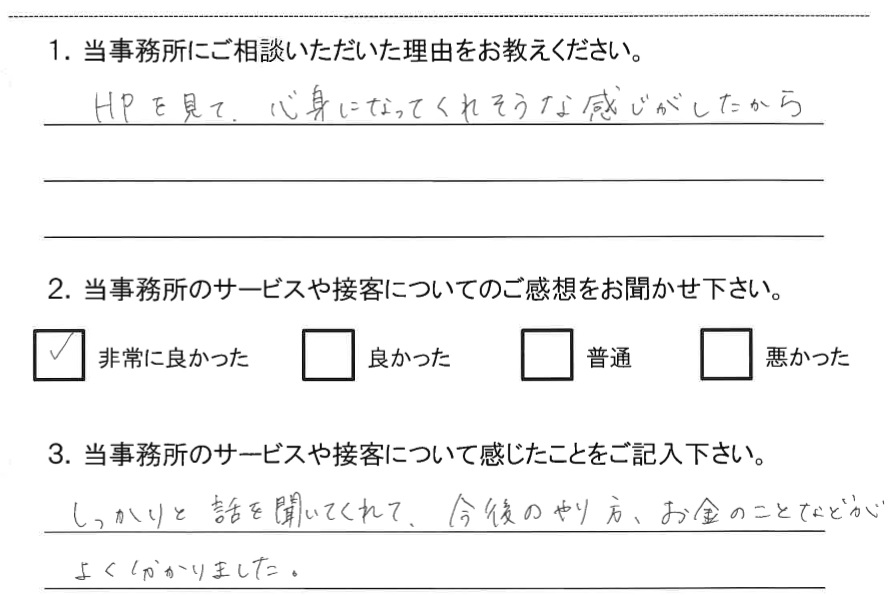 1. 当事務所にご相談いただいた理由をお教えください。
HPを見て、心身になってくれそうな感じがしたから
2. 当事務所のサービスや接客についてのご感想をお聞かせ下さい。
✓ 非常に良かった 良かった 普通 悪かった
3. 当事務所のサービスや接客について感じたことをご記入下さい。
しっかりと話を聞いてくれて、今後のやり方、お金のことなどが
よく分かりました。